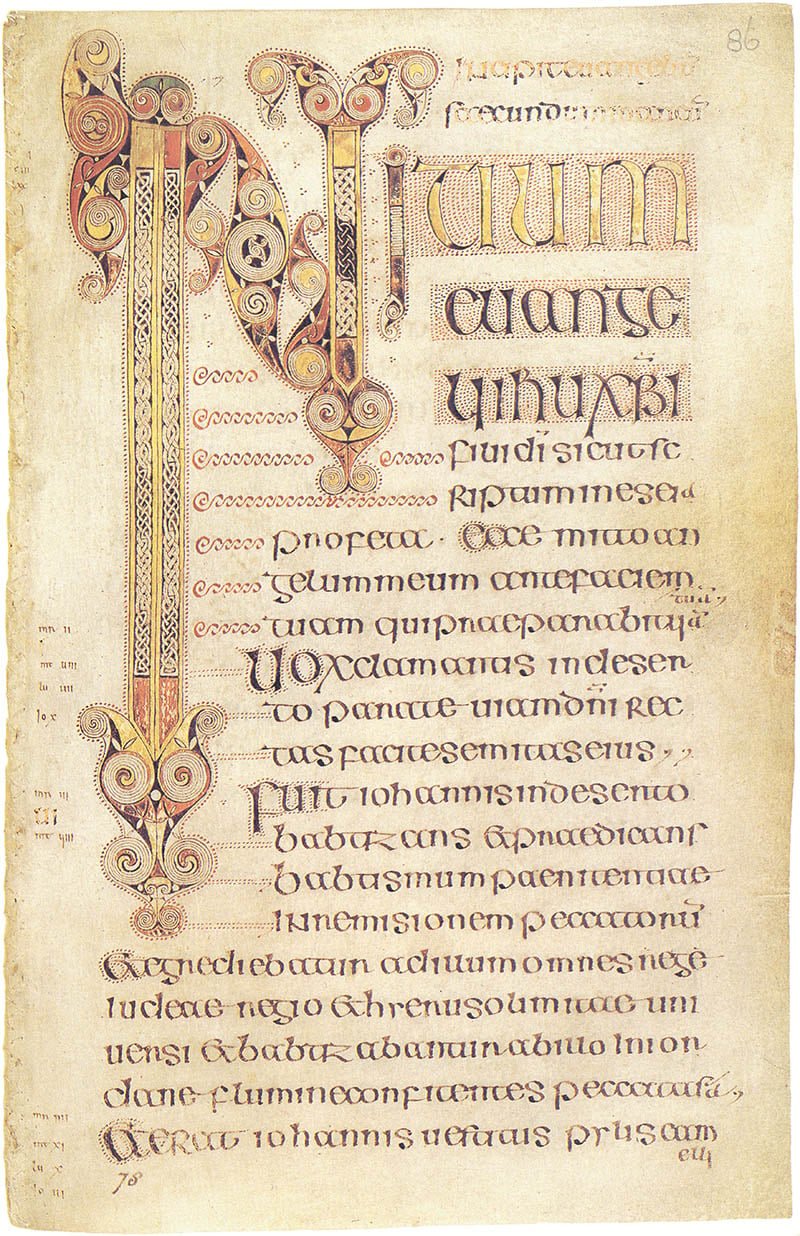 86
secundum
INITIUM
euange
lii ihu xp̄i
filii dī sicut sc
riptum in eseia
profeta · Ecce mitto an
gelum meum ante faciem
tuā
tuam qui praeparabit uiā
Uox clamantis in deser
to parate uiam dn̄i rec
tas facite semitas eius ,,
Fuit iohannis in deserto
babtizans & praedicans
babtismum paenitentiae
in remisionem peccatorū
& egrediebatur ad illum omnes rege
iudeae regio & hierusolimitae uni
uersi & babtizabantur ab illo in ior
dane flumine confitentes peccata sā ,,
& erat iohannis uestitus pylis cam
elli
78